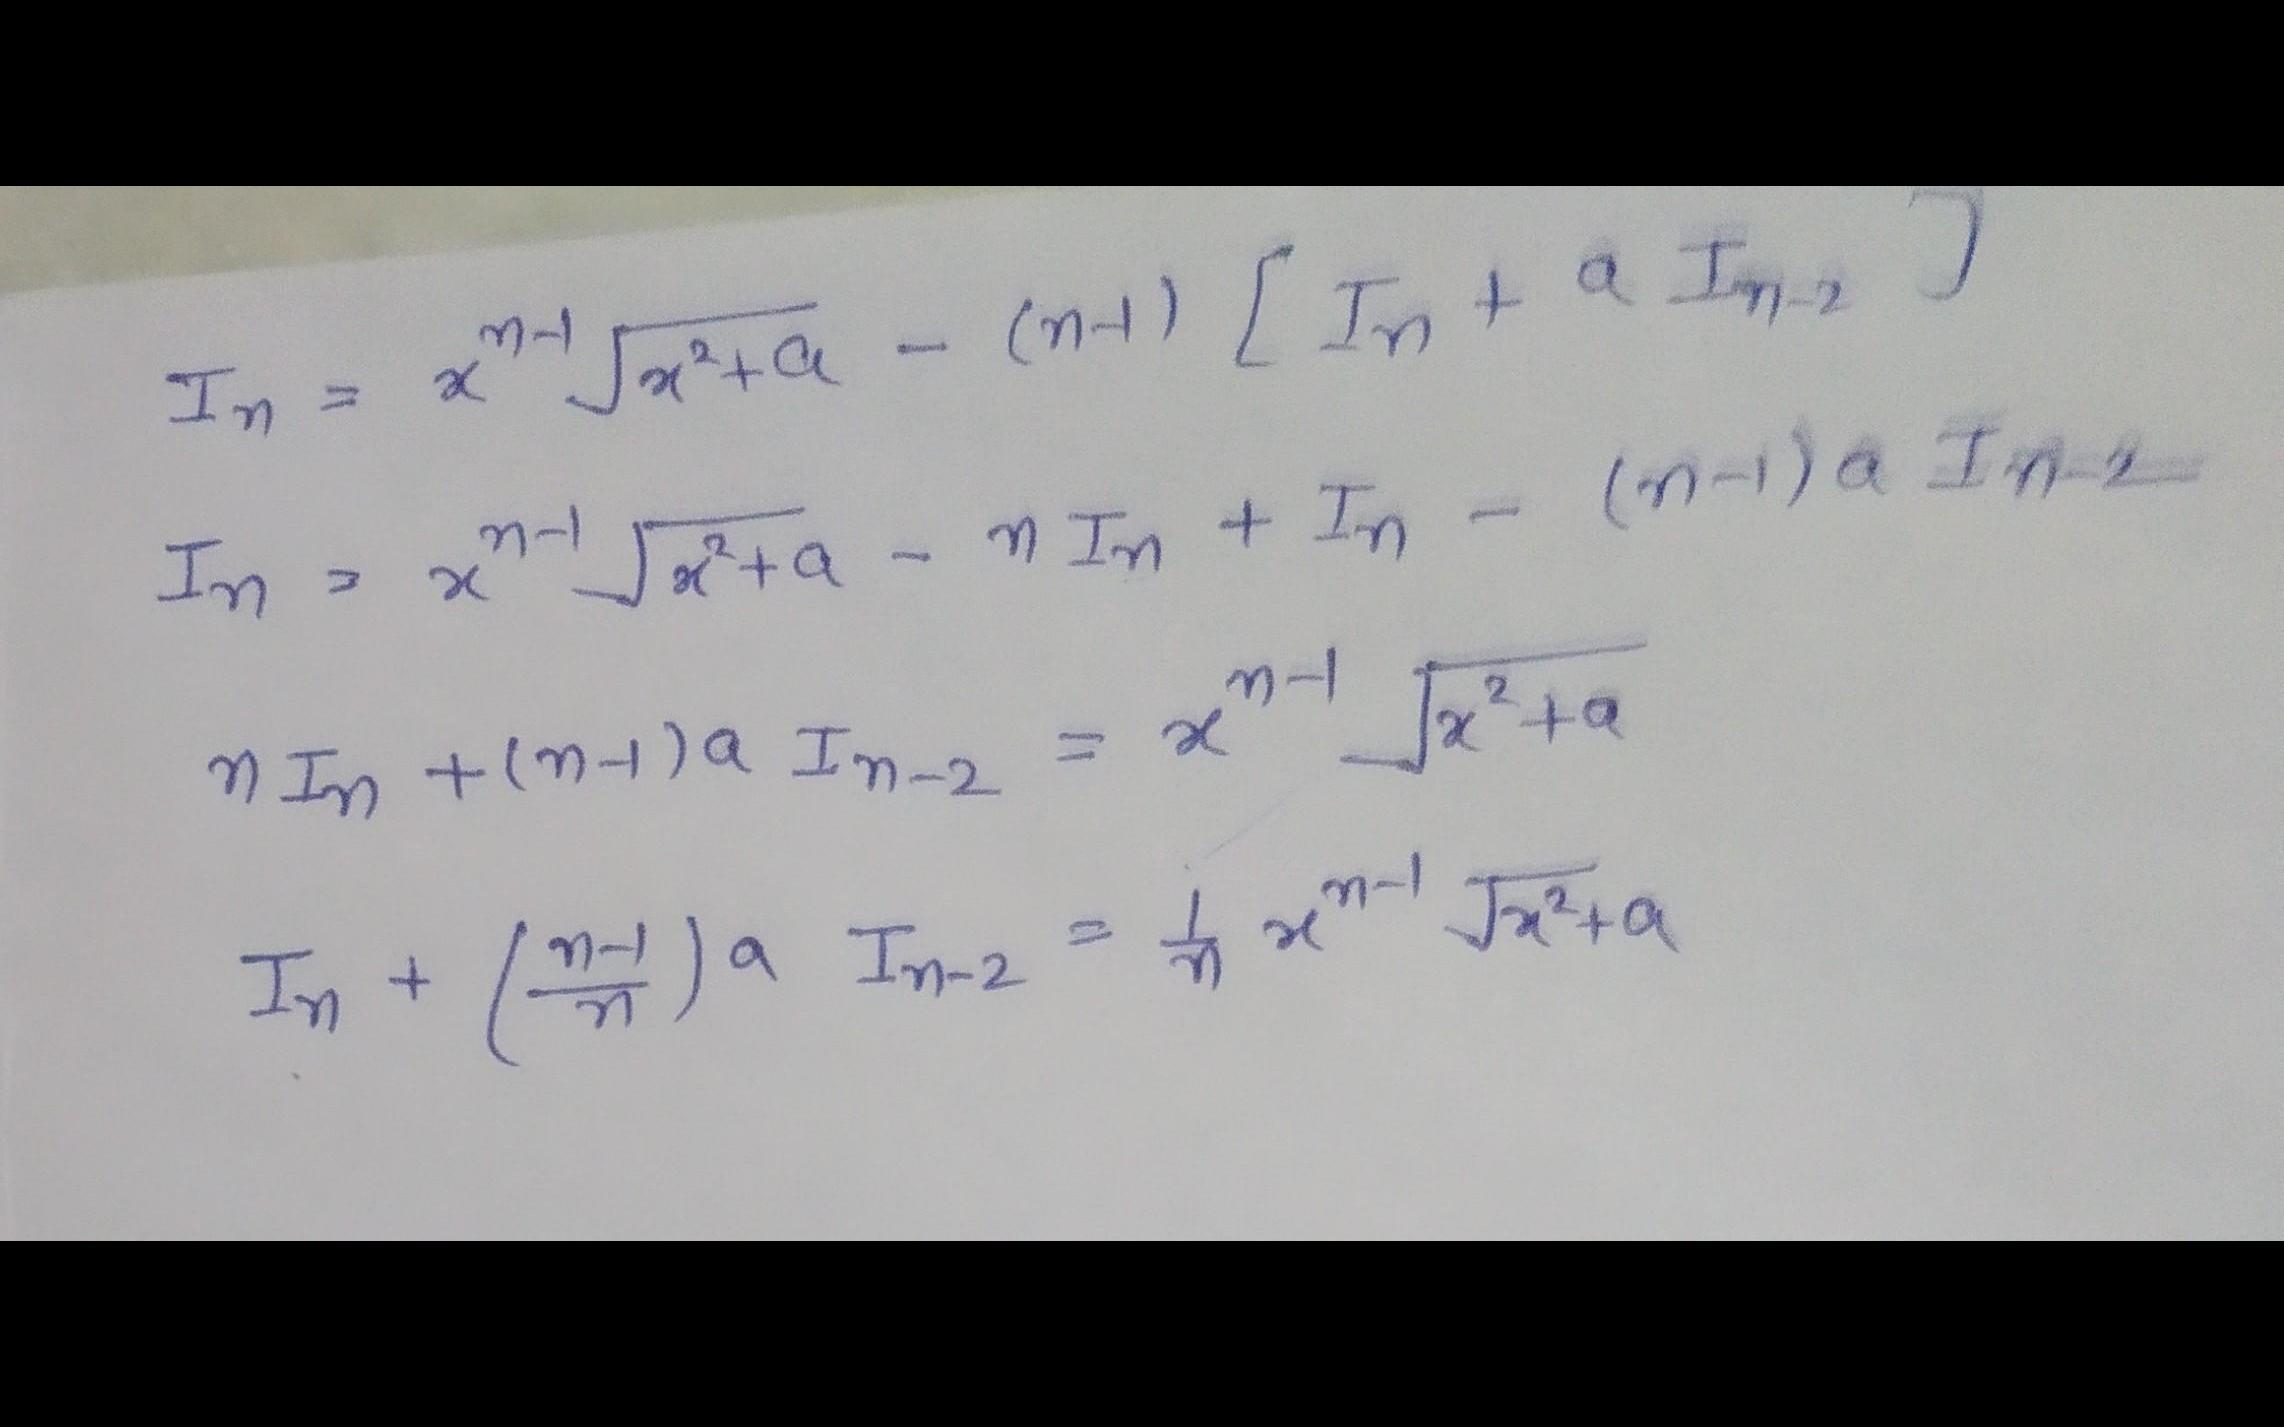 Iₙ = xⁿ⁻¹ √(x²+a) - (n-1) [ Iₙ + a Iₙ₋₂ ]
Iₙ = xⁿ⁻¹ √(x²+a) - n Iₙ + Iₙ - (n-1) a Iₙ₋₂
n Iₙ + (n-1) a Iₙ₋₂ = xⁿ⁻¹ √(x²+a)
Iₙ + ((n-1)/n) a Iₙ₋₂ = 1/n xⁿ⁻¹ √(x²+a)